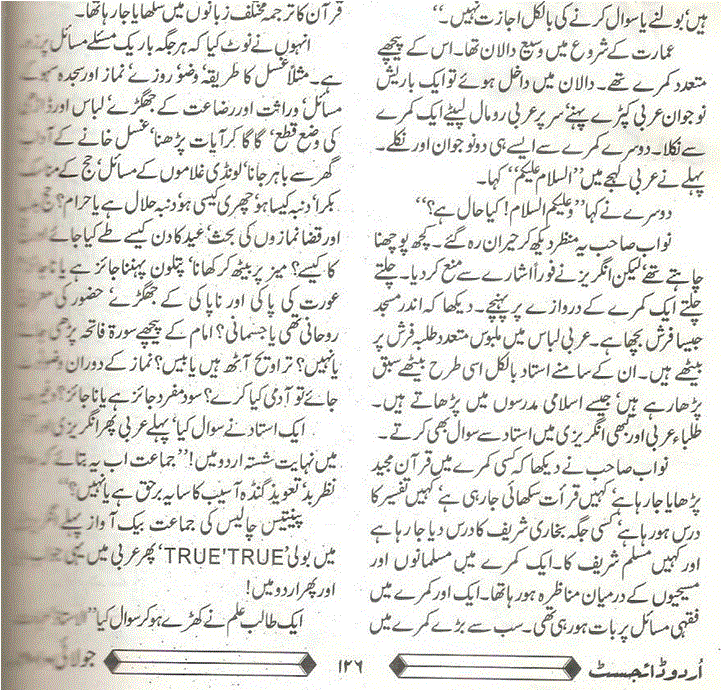 ہیں‘ بولنے یا سوال کرنے کی بالکل اجازت نہیں۔‘‘
عمارت کے شروع میں وسیع دالان تھا۔ اس کے پیچھے
متعدد کمرے تھے۔ دالان میں داخل ہوئے تو ایک باریش
نوجوان عربی کپڑے پہنے‘ سر پر عربی رومال لپیٹے ایک کمرے
سے نکلا۔ دوسرے کمرے سے ایسے ہی دو نوجوان اور نکلے۔
پہلے نے عربی لہجے میں ’’السلام علیکم‘‘ کہا۔
دوسرے نے کہا ’’وعلیکم السلام! کیا حال ہے؟‘‘
نواب صاحب یہ منظر دیکھ کر حیران رہ گئے۔ کچھ پوچھنا
چاہتے تھے لیکن انگریز نے فوراً اشارے سے منع کردیا۔ چلتے
چلتے ایک کمرے کے دروازے پر پہنچے۔ دیکھا کہ اندر مسجد
جیسا فرش بچھا ہے۔ عربی لباس میں ملبوس متعدد طلبہ فرش پر
بیٹھے ہیں۔ ان کے سامنے استاد بالکل اسی طرح بیٹھے سبق
پڑھا رہے ہیں‘ جیسے اسلامی مدرسوں میں پڑھاتے ہیں۔
طلباء عربی اور کبھی انگریزی میں استاد سے سوال بھی کرتے۔
نواب صاحب نے دیکھا کہ کسی کمرے میں قرآن مجید
پڑھایا جا رہا ہے‘ کہیں قرأت سکھائی جا رہی ہے‘ کہیں تفسیر کا
درس ہو رہا ہے‘ کسی جگہ بخاری شریف کا درس دیا جا رہا ہے
اور کہیں مسلم شریف کا۔ ایک کمرے میں مسلمانوں اور
مسیحیوں کے درمیان مناظرہ ہو رہا تھا۔ ایک اور کمرے میں
فقہی مسائل پر بات ہو رہی تھی۔ سب سے بڑے کمرے میں
قرآن کا ترجمہ مختلف زبانوں میں سکھایا جا رہا تھا۔
انہوں نے نوٹ کیا کہ ہر جگہ باریک مسئلے مسائل پر زور
ہے۔ مثلاً غسل کا طریقہ‘ وضو‘ روزے‘ نماز اور سجدہ سہو کے
مسائل‘ وراثت اور رضاعت کے جھگڑے‘ لباس اور ڈاڑھی
کی وضع قطع‘ گا گا کر آیات پڑھنا‘ غسل خانے کے آداب
گھر سے باہر جانا‘ لونڈی غلاموں کے مسائل‘ حج کے مناسک
بکرا‘ دنبہ کیسا ہو‘ چھری کیسی ہو‘ دنبہ حلال ہے یا حرام؟ حج
اور قضا نمازوں کی بحث‘ عید کا دن کیسے طے کیا جائے
کا کیسے؟ میز پر بیٹھ کر کھانا‘ پتلون پہننا جائز ہے یا ناجائز
عورت کی پاکی اور ناپاکی کے جھگڑے‘ حضور کی معراج
روحانی تھی یا جسمانی؟ امام کے پیچھے سورۃ فاتحہ پڑھی جائے
یا نہیں؟ تراویح آٹھ ہیں یا بیس؟ نماز کے دوران وضو
جائے تو آدمی کیا کرے؟ سود مفرد جائز ہے یا ناجائز؟
ایک استاد نے سوال کیا‘ پہلے عربی پھر انگریزی اور
میں نہایت شستہ اردو میں! ’’جماعت اب یہ بتائے کہ
نظربد‘ تعویذ گنڈہ آسیب کا سایہ برحق ہے یا نہیں؟‘‘
پینتیس چالیس کی جماعت بیک آواز پہلے انگریزی
میں بولی ’TRUE'TRUE‘ پھر عربی میں یہی
اور پھر اردو میں!
ایک طالب علم نے کھڑے ہو کر سوال کیا
اُردو ڈائجسٹ ۱۲۶ جولائی